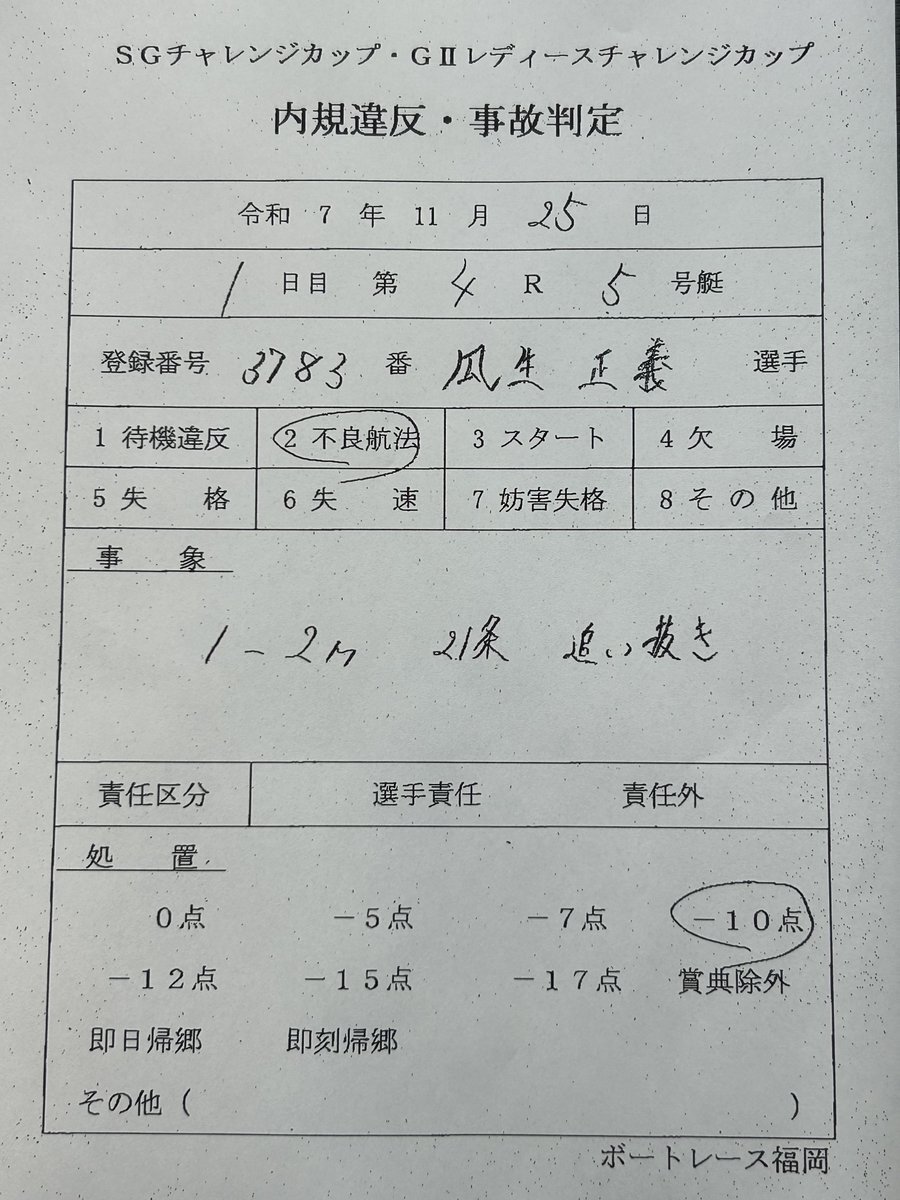 SGチャレンジカップ・GⅡレディースチャレンジカップ
内規違反・事故判定
令和 7 年 11 月 25 日
1 日目 第 4 R 5 号艇
登録番号 3783 番 瓜生 正義 選手
1 待機違反 2 不良航法 3 スタート 4 欠 場
5 失 格 6 失 速 7 妨害失格 8 その他
事 象
1-2m 21条 追い抜き
責任区分 選手責任 責任外
処 置
0点 -5点 -7点 -10点
-12点 -15点 -17点 賞典除外
即日帰郷 即刻帰郷
その他 ( )
ボートレース福岡